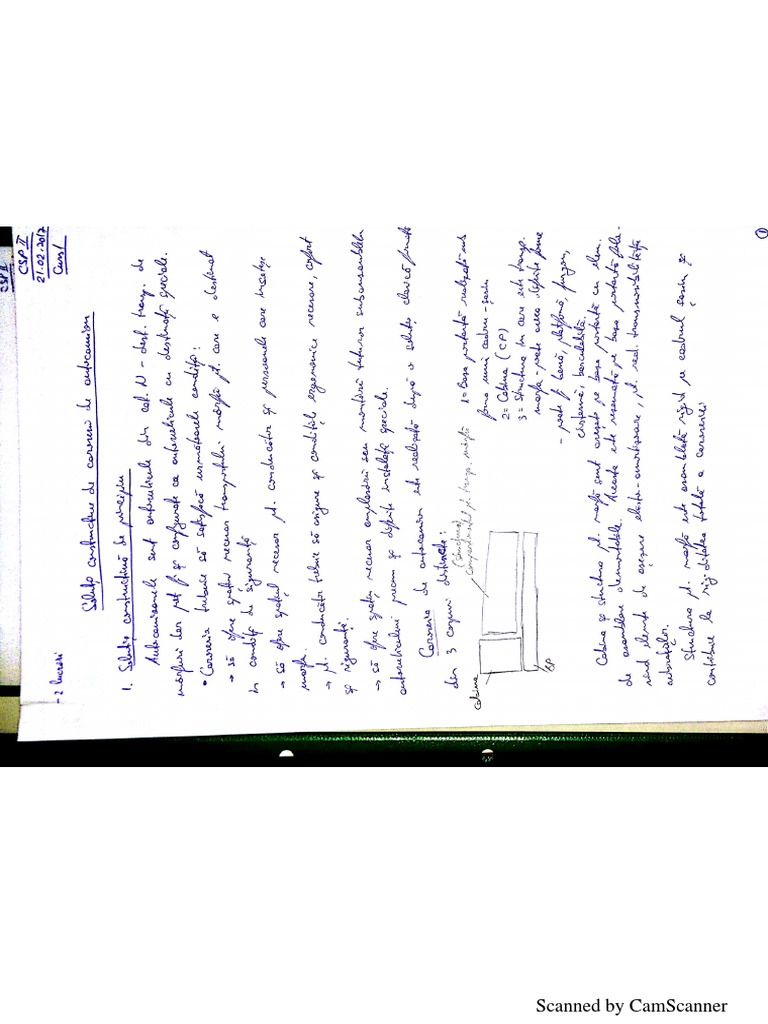 CSP II
CSP II
21.02.2017
Curs 1
-2 lucrări
Soluții constructive de caroserii de autocamion
1. Soluția constructivă de principiu
Autocamioanele sunt autovehicule din cat. N - dest. transp. de
mărfuri dar pot fi și configurate ca autovehicule cu destinații speciale.
• Caroseria trebuie să satisfacă următoarele condiții:
→ să ofere spațiul necesar transportului mărfii pt. care e destinat
în condiții de siguranță
→ să ofere spațiul necesar pt. conducător și persoanele care însoțesc
marfa.
→ pt. conducător trebuie să asigure și condițiile ergonomice necesare, confort
și siguranță.
→ să ofere spațiu necesar amplasării sau montării tuturor subansamblelor
autovehiculului precum și diferite instalații speciale.
Caroseria de autocamion este realizată după o soluție clasică formată
din 3 corpuri distincte:
(structura)
compartimentul pt. transp. mărfii
cabina
CP
1= Baza portantă realizată sub
forma unui cadru-șasiu
2= Cabina (CP)
3= Structura în care este transp.
marfa - poate avea diferite forme
- poate fi benă, platformă, furgon,
cisternă, basculabilă.
Cabina și structura pt. marfă sunt așezate pe baza portantă cu elem.
de asamblare demontabile. Acestea este rezemată pe baza portantă folo-
sind elemente de asezare elastic-amortizoare, pt. red. transmisibilității
vibrațiilor.
Structura pt. marfă este asamblată rigid pe cadrul șasiu și
contribuie la rigiditatea totală a caroseriei
1
Scanned by CamScanner